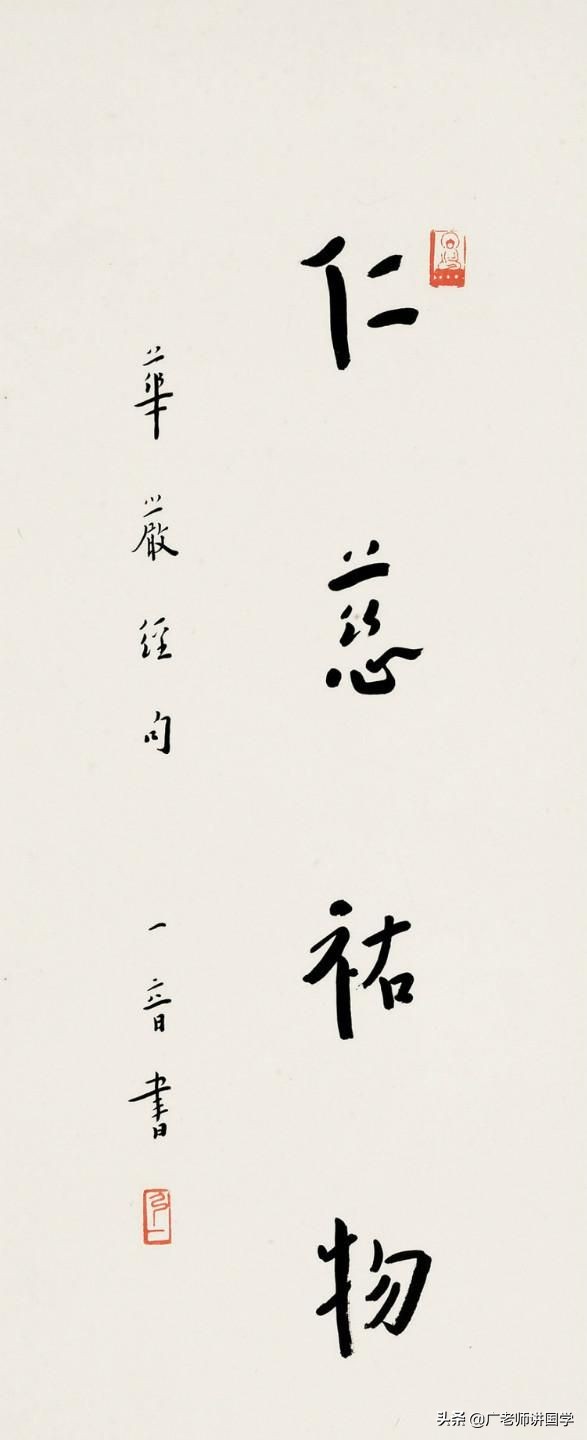 仁慈祐物
華嚴經句 一音書
弘一
头条 @广老师讲国学